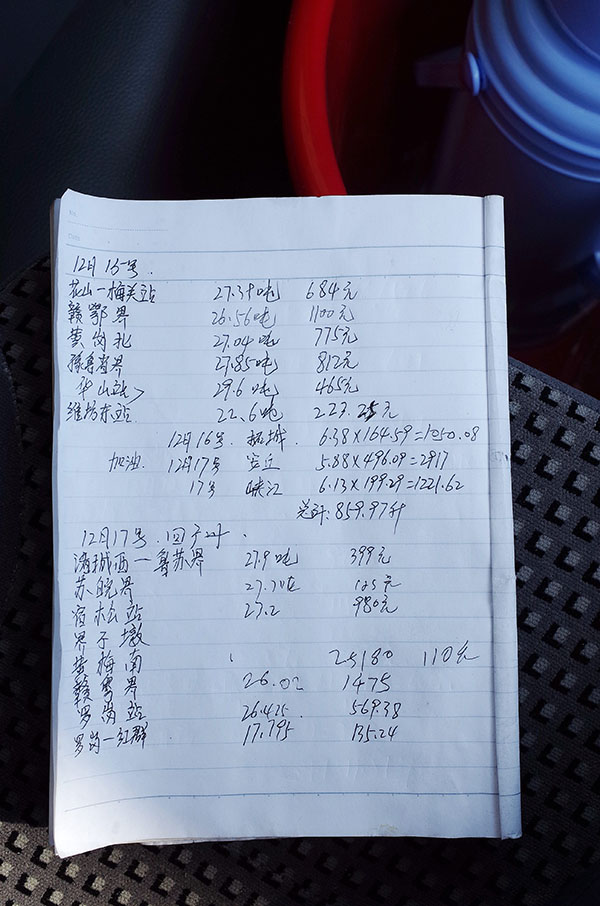 12月15号.
花山一梅关站 27.39吨 684元
赣鄂界 26.56吨 1100元
黄岗北 27.04吨 775元
豫鲁省界 27.85吨 812元
华山站 29.6吨 465元
维坊东站 22.6吨 227.25元
12月16号. 柘城 6.38×164.59=1050.08
加油. 12月17号 安丘 5.88×496.09=2917
17号 峡江 6.13×199.29=1221.62
总计:859.97升
12月17号.回
诸城西一鲁苏界 27.9吨 399元
苏皖界 27.7吨 125元
宿松站 27.2 980元
界子墩
黄梅南 25180 110元
赣粤界 26.02 1475
罗岗站 26.425 569.38
罗岗一红群 17.795 135.24